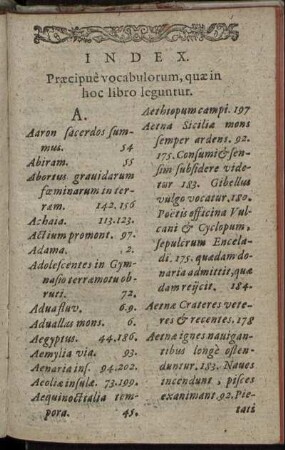 INDEX.
Præcipuè vocabulorum, quæ in
hoc libro leguntur.
A.
Aaron sacerdos sum-
mus. 54
Abiram. 55
Abortus grauidarum
fœminarum in ter-
ram. 142.156
Achaia. 113.123.
Actium promont. 97.
Adama. 2.
Adolescentes in Gym-
nasio terræmotu ob-
ruti. 72.
Adua fluv. 6.9.
Aduallas mons. 6.
Aegyptus. 44.186.
Aemylia via. 93.
Aenaria ins. 94.202.
Aeoliæ insulæ. 73.199.
Aequinoctialia tem-
pora. 45.
Aethiopum campi. 197
Aetna Siciliæ mons
semper ardens. 92.
175. Consumi & sen-
sim subsidere vide-
tur 183. Gibellus
vulgo vocatur. 180.
Poëtis officina Vul-
cani & Cyclopum,
sepulcrum Encela-
di. 175. quædam do-
naria admittit, quæ
dam reijcit. 184.
Aetnæ Crateres vete-
res & recentes. 178
Aetnæ ignes nauigan-
tibus longè osten-
duntur. 183. Naues
incendunt, pisces
exanimant. 92. Pie-
tati